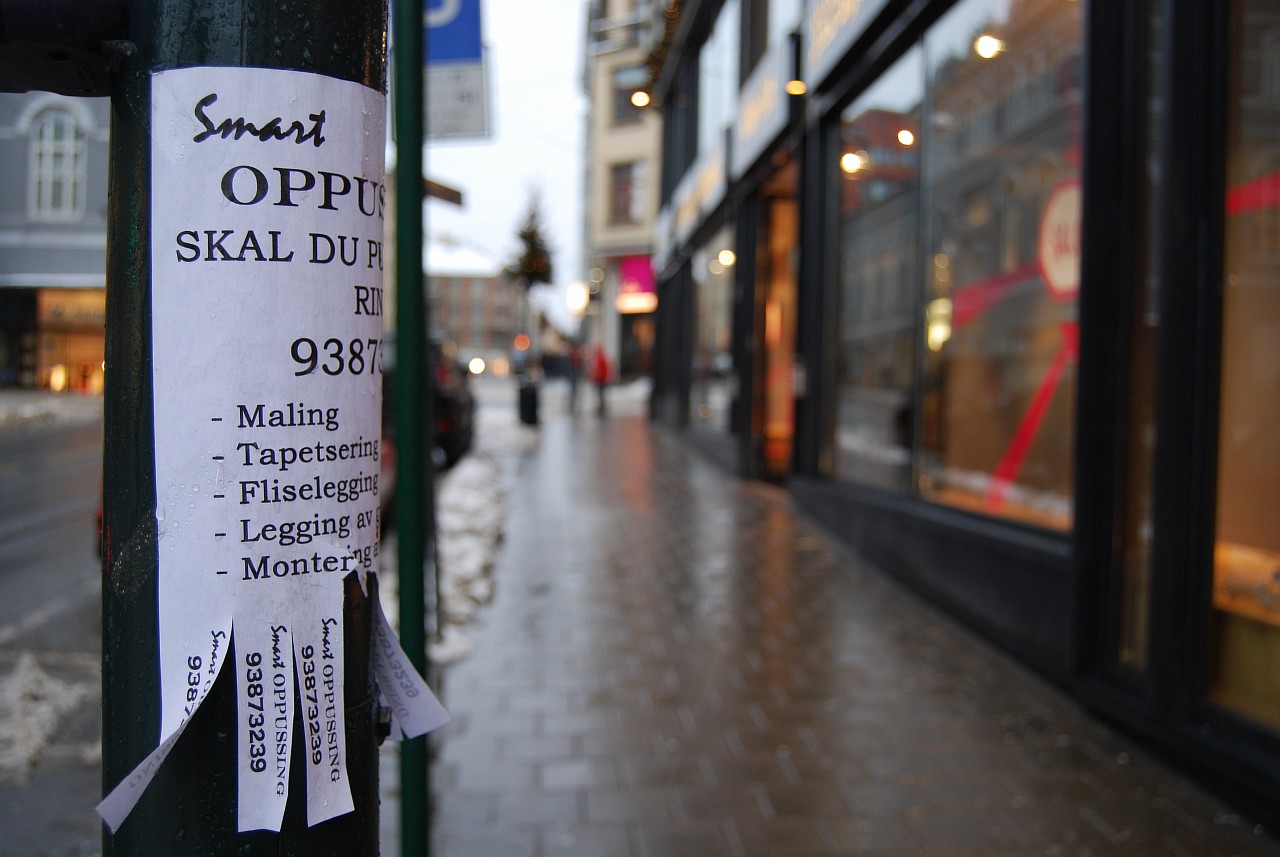 Smart
OPPUS
SKAL DU P
RIN
93873
- Maling
- Tapetsering
- Fliselegging
- Legging av g
- Montering a
Smart O
9387
Smart OPPUSSING
93873239
Smart OPPUSSING
93873239